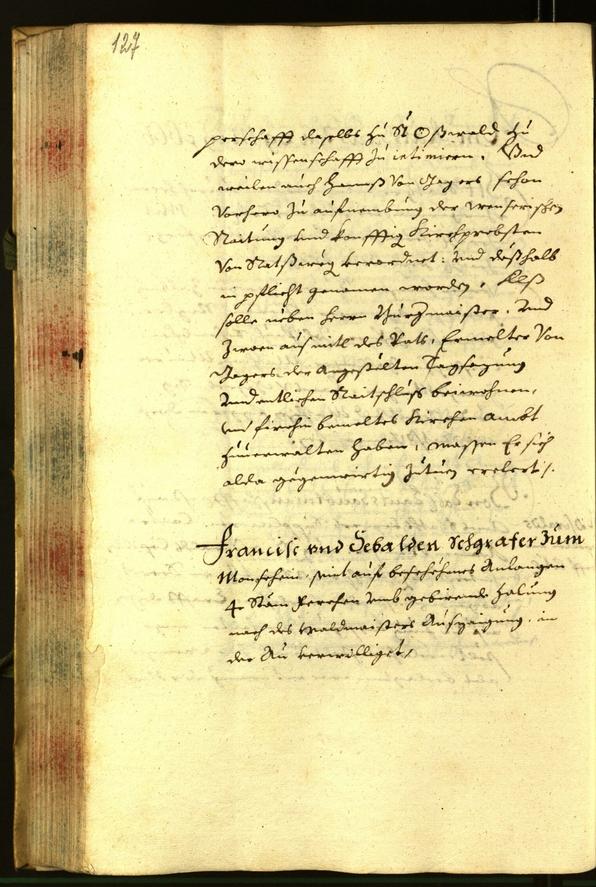 127
perschafft daselbs zu St Oßwald zu
dero wissenschafft zu intimiern. Und
weilen auch Hannß von Jagers schon
vorhero zu aufnembung der
Raitung und konfftig Kirchprobsten
von Ratßweg verordnet: und deßhalb
in pflicht genomen worden, Alß
solle neben herrn Burgmaister, und
zween aus mitl des Rats, Ermelter von
Jagers der Angestelten Tagsazung
und entlichen Raitschluß beiwohnen,
und firohin bemeltes Kirchen Ambt
zuuerwalten haben, massen Er sich
alda gegenwirtig erclert /.
Francisc und Sebalden Schgrafer zum
Monschein, sint auf beschehnes Anlangen
4 Stäm Ferchen umb gebirende Zalung
nach des Waldmaisters Auszaigung, in
der Au verwilliget /